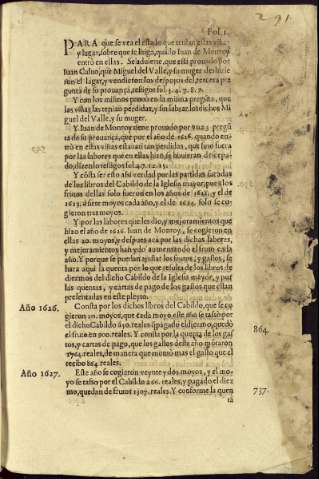 Fol. 1.
291.
PARA que se vea el estado que tenian estas viñas,
y lagar, sobre que se litiga, quãdo Iuan de Monroy
entrò en ellas. Se aduierte, que està prouado por
Iuan Caluo, y
rian el
gunta de su prouança, testigos fol. 3. 4. 7. 8. 9.
Y con los mismos prouò en la misma pregũta, que
las viñas las tenian perdidas, y sin labrar los dichos Mi
guel del Valle, y su muger.
Y Iuan de Monroy tiene prouado por su
ta de su prouança, que por el año de 1626. quando en
trò en estas viñas estauan tan perdidas, que sino fuera
por las labores que en ellas hizo, se
dido, dizenlo testigos fol.
Y cõsta ser esto assi verdad por las partidas sacadas
de los libros del Cabildo de la Iglesia mayor, pues los
frutos dellas solo fueron en los años de y el de
1625. a siete moyos cada año, y el de 1625. solo se co
gieron tres moyos.
Y por las labores que les dio, y mejoramientos que
hizo el año de 1626. Iuan de Monroy, se cogieron en
ellas 20. moyos, y despues aca por las dichas labores,
y mejoramientos han ydo aumentando el fruto cada
año. Y porque se puedan ajustar los frutos, y gastos, se
hara aqui la quenta por lo que resulta de los libros de
diezmos del dicho Cabildo de la Iglesia mayor, y por
las quentas, y cartas de pago de los gastos que estan
presentadas en este pleyto.
Año 1626.
Consta por los dichos libros del Cabildo, que se co
gieron 20. moyos, que cada moyo este año se tassò por
el dicho Cabildo
el fruto en 900. reales. Y consta por la quenta de los gas
tos, y cartas de pago, que los gastos deste año mõtaron
1764. reales, de manera que montò mas el gasto que el
recibo 864. reales.
864.
Año 1627.
Este año se cogieron veynte y dos moyos, y el mo
yo se tassò por el Cabildo a 66. reales, y pagado el diez
mo, quedan de frutos 1307. reales. Y conforme la quen
737.
ta